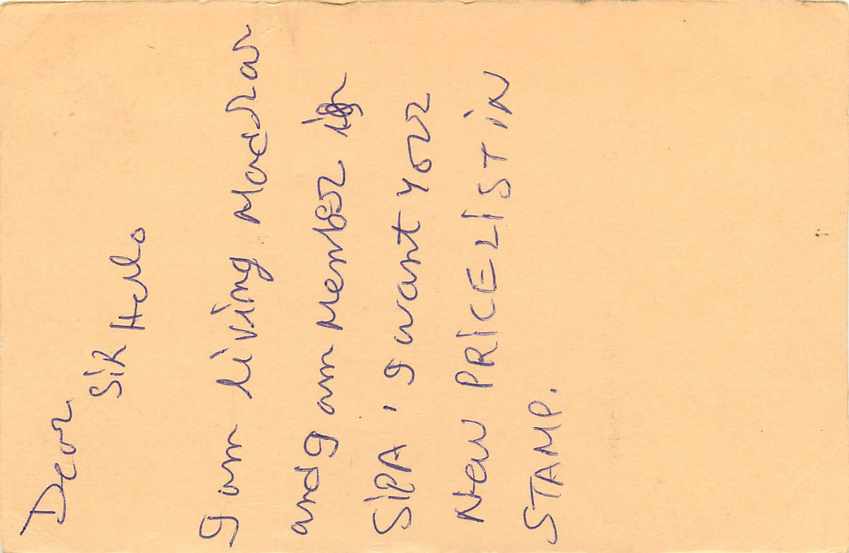 Dear
SiR Hello
I am living Madras
and I am Member in
SIPA, I want your
New PRiCELiST iN
STAMP.